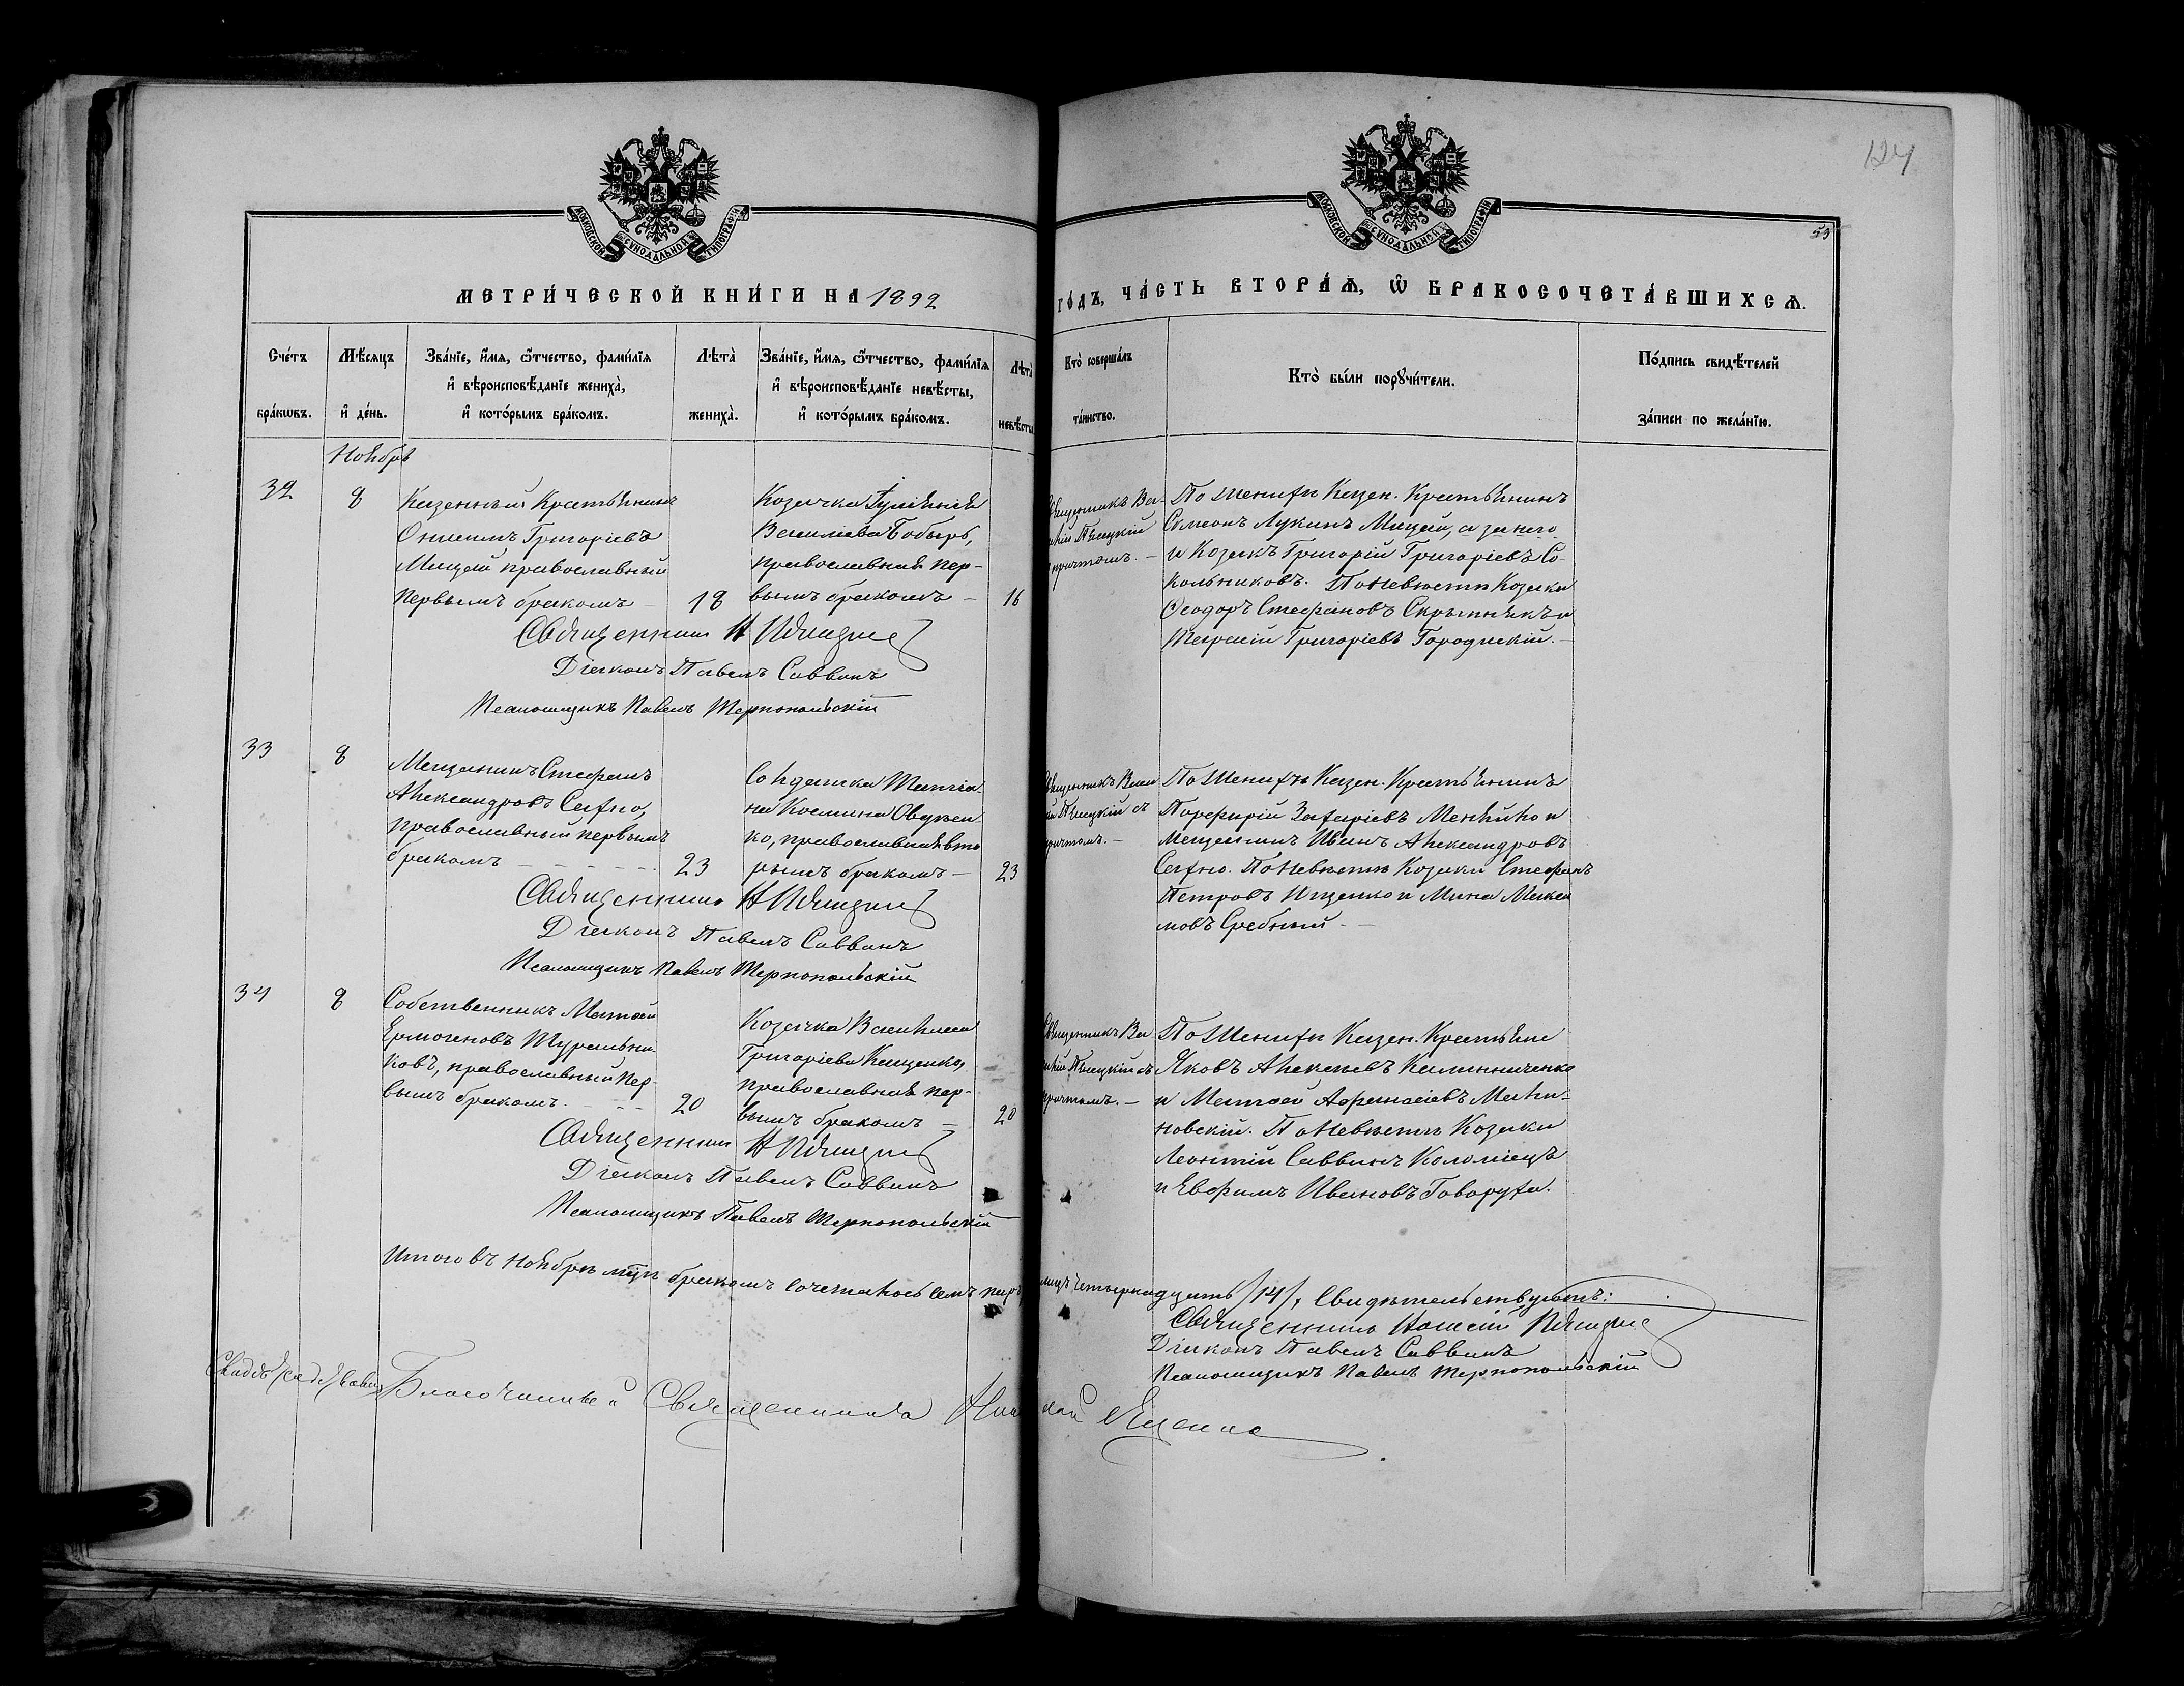 124
59
МОСКОВСКОЙ СѴНОДАЛЬНОЙ ТИПОГРАФІИ
МОСКОВСКОЙ СѴНОДАЛЬНОЙ ТИПОГРАФІИ
МЕТРИ́ЧЕСКОЙ КНИ́ГИ НА 1892
ГО́ДЪ, ЧА́СТЬ ВТОРА́Ѧ, Ѡ БРАКОСОЧЕТА́ВШИХСѦ.
Сче́тъ бра́кѡвъ.
Мѣ́сяцъ и҆ де́нь.
Зва́нїе, и҆́мя, ѻ҆́тчество, фами́лїя
и҆ вѣроисповѣ́данїе жениха̀,
и҆ кото́рымъ бра́комъ.
Лѣта̀ жениха̀.
Зва́нїе, и҆́мя, ѻ҆́тчество, фами́лїя
и҆ вѣроисповѣ́данїе невѣ́сты,
и҆ кото́рымъ бра́комъ.
Лѣта̀ невѣ́сты
Кто̀ соверша́лъ
та́инство.
Кто̀ бы́ли порꙋчи́тели.
По́дпись свидѣ́телей
за́писи по жела́нїю.
Ноябрь
32
8
Казенный Крестьянинъ
Онисимъ Григоріевъ
Мицай православный
первымъ бракомъ —
18
Козачка Іуліанія
Васильева Бобырь,
православная пер-
вымъ бракомъ —
16
Священникъ
Пясецкій
причтомъ. —
По женихѣ Казен. Крестьянинъ
Симеонъ Лукинъ Мицай, а за него
и Козакъ Григорій Григоріевъ Со-
кольниковъ. По невѣстѣ Козаки
Ѳеодоръ Стефановъ Скрыпникъ и
Григоріевъ Городискій. —
Священникъ
Діаконъ Павелъ Саввинъ
Псаломщикъ Павелъ Тернопольскій
33
8
Мещанинъ Стефанъ
Александровъ Сахно,
православный первымъ
бракомъ
23
Солдатка Татіа
на Космина Овдѣен
ко, православная вто
рымъ бракомъ —
23
Священникъ
Пясецкій съ
причтомъ. —
По женихѣ Казен. Крестьянинъ
Порфирій Захаріевъ и
Мещанинъ Иванъ Александровъ
Сахно. По невѣстѣ Козаки Стефанъ
Петровъ Ищенко и Мина Макси
мовъ Сребный —
Священникъ
Діаконъ Павелъ Саввинъ
Псаломщикъ Павелъ Тернопольскій
34
8
Собственникъ Матѳей
Ермогеновъ Журавлни-
ковъ, православный пер-
вымъ бракомъ. — —
20
Козачка Василиса
Григоріева Кащенко,
православная пер-
вымъ бракомъ —
20
Священникъ
Пясецкій съ
причтомъ. —
По женихѣ Казен. Крестьяне
Яковъ Алексѣевъ Калиниченко
и Матѳей Аѳанасіевъ Мали-
новскій. По невѣстѣ Козаки
Леонтій Саввинъ Коломіецъ
и Евфимъ Ивановъ Говоруха.
Священникъ
Діаконъ Павелъ Саввинъ
Псаломщикъ Павелъ Тернопольскій
Итого въ Ноябрѣ м-цѣ бракомъ сочеталось семь паръ
лицъ четырнадцать /14/, Свидѣтельствуютъ:
Священникъ
Діаконъ Павелъ Саввинъ
Псаломщикъ Павелъ Тернопольскій
Благочинный Священникъ